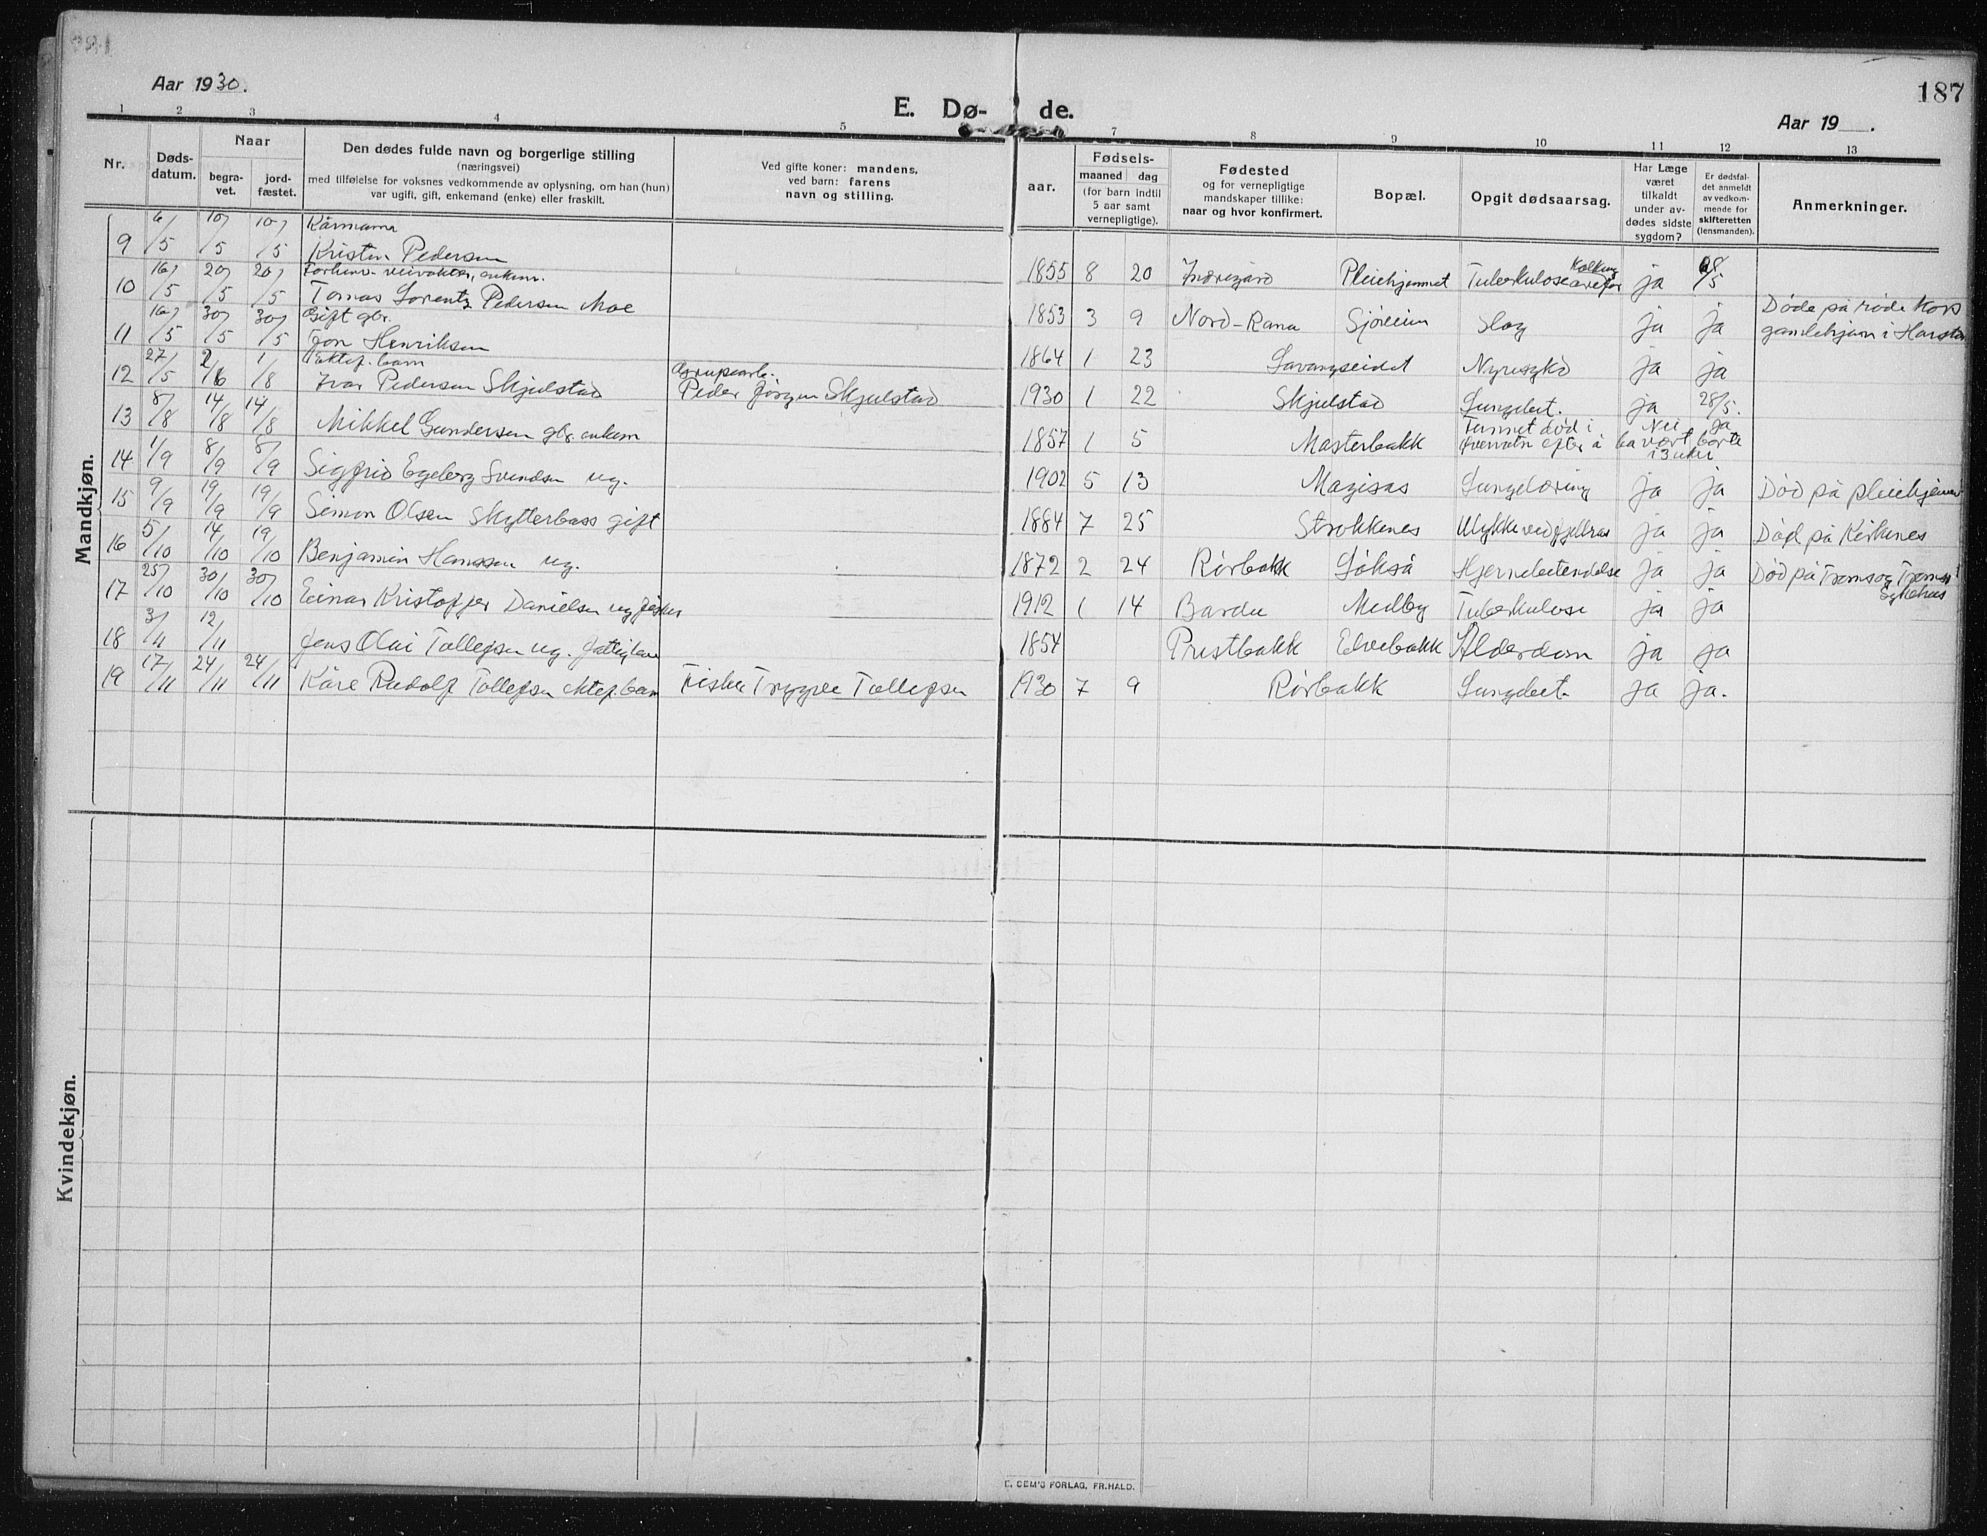 187
Aar 1930.
E. Dø- de.
Aar 19 .
1 2 3 4 5 7 8 9 10 11 12 13
Nr.
Døds-
datum.
Naar
begra-
vet.
jord-
fæstet.
Den dødes fulde navn og borgerlige stilling
(næringsvei)
med tilføielse for voksnes vedkommende av oplysning, om han (hun)
var ugift, gift, enkemand (enke) eller fraskilt.
Ved gifte koner: mandens,
ved barn: farens
navn og stilling.
aar.
Fødsels-
maaned dag
(for barn indtil
5 aar samt
vernepligtige).
Fødested
og for vernepligtige
mandskaper tillike:
naar og hvor konfirmert.
Bopæl.
Opgit dødsaarsag.
Har Læge
været
tilkaldt
under av-
dødes sidste
sygdom?
Er dødsfal-
det anmeldt
av vedkom-
mende for
skifteretten
(lensmanden).
Anmerkninger.
Mandkjøn.
9 6/5 10/5 10/5 Kårmann
Kristen Pedersen 1855 8 20 Pleiehjemmet Tuberkulose ja 28/5
10 16/5 20/5 20/5 Forhenv. veivokter, enkem.
Tomas Lorentz Pedersen Moe 1853 3 9 Nord-Rana Sjøveien Slag ja ja Døde på Røde Kors
gamlehjem i Harstad
11 16/5 30/5 30/5 Gift gbr.
Jon Henriksen 1864 1 23 Lavangseidet Nyresyk ja ja
12 27/5 2/6 1/8 Ektef. barn
Ivar Pedersen Skjelstad Peder Jørgen Skjelstad 1930 1 22 Skjelstad Lungebet. ja 28/5.
13 8/8 14/8 14/8 Mikkel Gundersen gbr. enkem 1857 1 5 Masterbakk Funnet død i
efter å ha vært borte
i 3 uker Nei ja
14 1/9 8/9 8/9 Sigfrid Egeberg Svendsen ug. 1902 5 13 Lungetæring ja ja Død på pleiehjemmet
15 9/9 19/9 19/9 Simon Olsen Skytterbass gift 1884 7 25 Strokkenes Ulykke ved fjellras ja ja Død på Kirkenes
16 5/10 14/10 19/10 Benjamin Hanssen ug. 1872 2 24 Rørbakk Løkså Hjernebetendelse ja ja Død på Tromsø
Sykehus
17 25/10 30/10 30/10 Einar Kristoffer Danielsen ug fisker 1912 1 14 Bardu Medby Tuberkulose ja ja
18 3/11 12/11 Jens Olai Tollefsen ug. fattiglem 1854 Prestbakk Elvebakk Alderdom ja ja
19 17/11 24/11 24/11 Kåre Rudolf Tollefsen ektef. barn Fisker Trygve Tollefsen 1930 7 9 Rørbakk Lungebet. ja ja.
Kvindekjøn.
E. SEM'S FORLAG, FR.HALD.